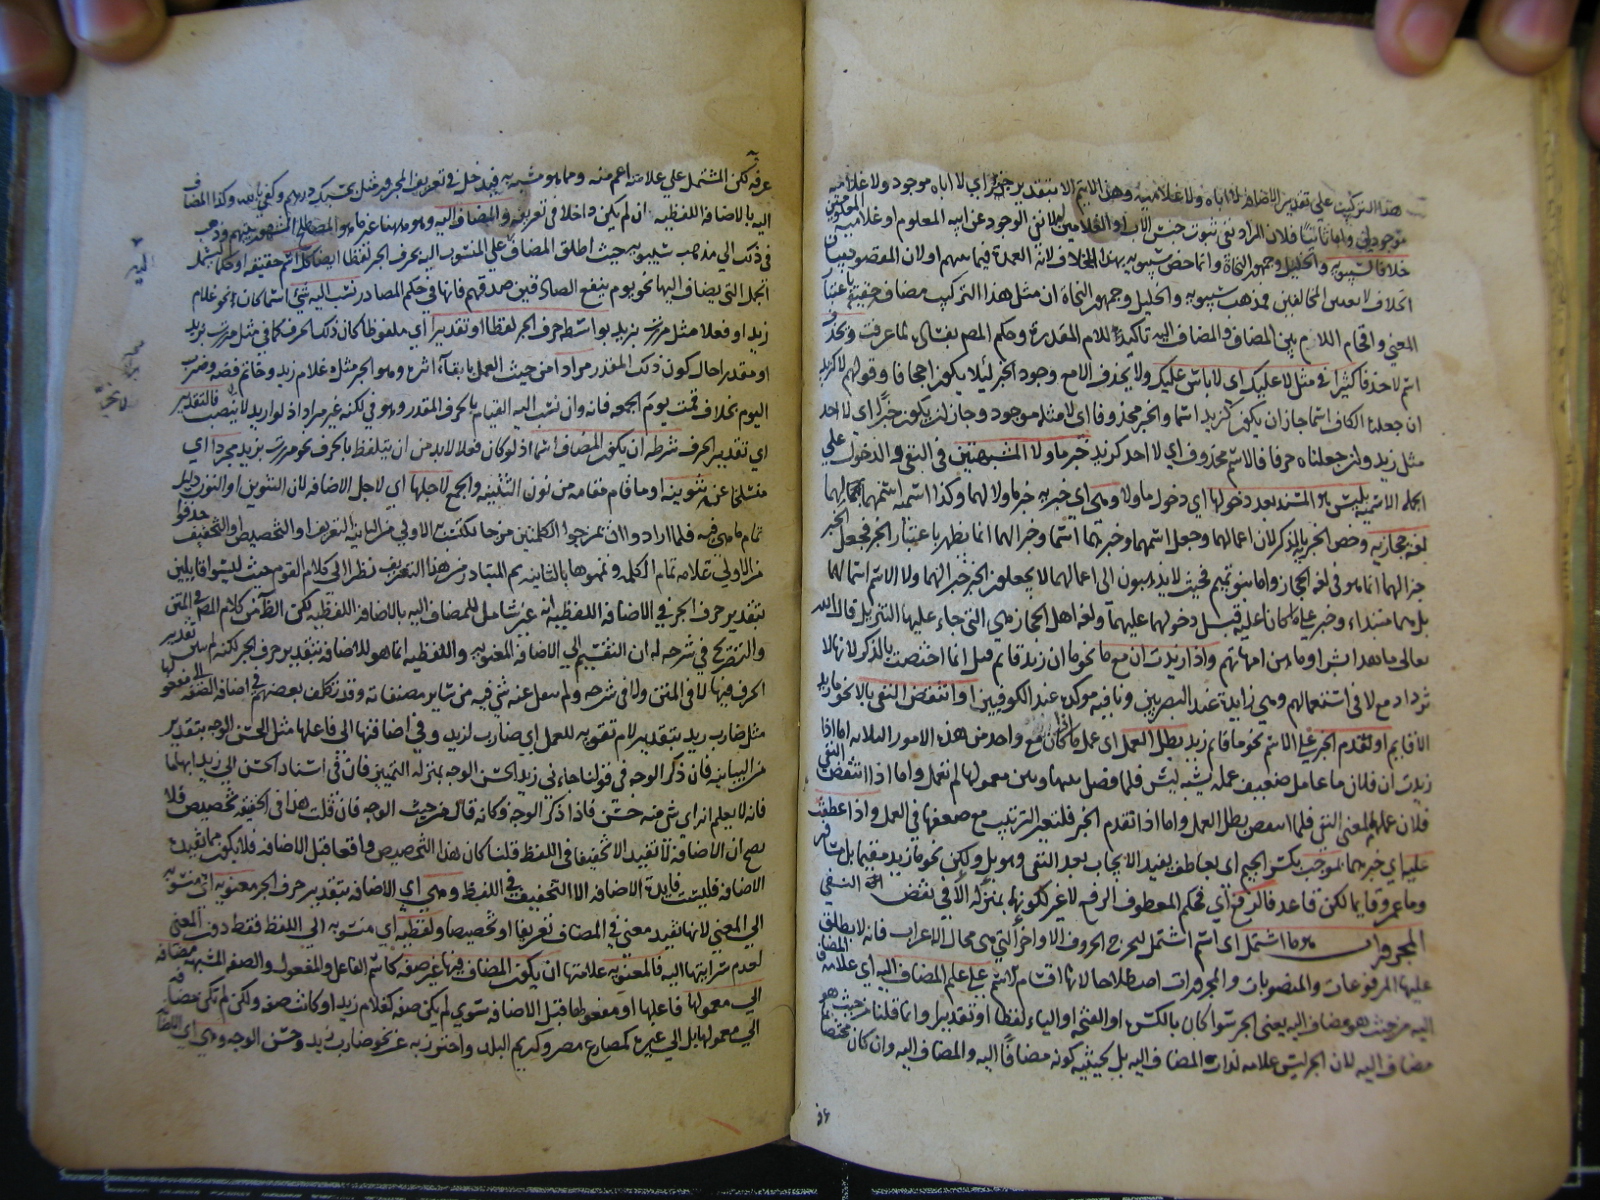 هذا التركيب على تقدير الاضافة لا اباه ولا غلاميه وهذا لا يتم الا بتقدير خبر اي لا اباه موجود ولا غلاميه
موجودان واما ثانيا فلان المراد نفي ثبوت جنس الاب او الغلامين له لا نفي الوجود عن ابيه المعلوم او غلاميه المعلومين
خلافا لسيبويه والخليل وجمهور النحاة وانما خص سيبويه بهذا الخلاف لانه العمدة فيما بينهم او لان المقصود بيان
الخلاف لا تعيين المخالفين فمذهب سيبويه والخليل وجمهور النحاة ان مثل هذا التركيب مضاف حقيقة باعتبار
المعنى واقحام اللام بين المضاف والمضاف اليه تأكيدا للام المقدرة وحكم المص بفساده لما عرفت ويحذف
اسم لا حذفا كثيرا في مثل لا عليك اي لا باس عليك ولا يحذف الا مع وجود الخبر لئلا يكون اجحافا وقولهم لا كزيد
ان جعلنا الكاف اسما جاز ان يكون كزيد اسما والخبر محذوفا اي لا مثله موجود وجاز ان يكون خبرا اي لا احد
مثل زيد وان جعلناه حرفا فالاسم محذوف اي لا احد كزيد خبر ما ولا المشبهتين في النفي والدخول على
الجملة الاسمية بليس هو المسند بعد دخولهما اي دخول ما ولا وهي اي خبرية خبر ما ولا لهما وكذا اسمية اسمهما لهما
لغة حجازية وخص الخبر بالذكر لان اعمالهما وجعل اسمهما وخبرهما اسما وخبرا لهما انما يظهر باعتبار الخبر فجعل الخبر
خبرا لهما انما هو في لغة الحجاز واما بنو تميم فحيث لا يذهبون الى اعمالهما لا يجعلون الخبر خبرا لهما ولا الاسم اسما لهما
بل هما مبتداء وخبر على ما كانا عليه قبل دخولهما عليهما ولغة اهل الحجاز هي التي جاء عليها التنزيل قال الله
تعالى ما هذا بشرا وما هن امهاتهم واذا زيدت ان مع ما نحو ما ان زيد قايم قيل انما اختصت بالذكر لانها لا
تزداد مع لا في استعمالهم وهي زايدة عند البصريين ونافية موكدة عند الكوفيين او انتقض النفي بالا نحو ما زيد
الا قايم او تقدم الخبر على الاسم نحو ما قايم زيد بطل العمل اي عمل ما اذا كان مع واحد من هذه الامور الثلاثة اما اذا
زيدت ان فلان ما عامل ضعيف عمله لشبه ليس فلما فصل بينها وبين معمولها لم تعمل واما اذا انتقض النفي
فلان عملها لمعنى النفي فلما انتقض بطل العمل واما اذا تقدم الخبر فلتغير الترتيب مع ضعفها في العمل واذا عطف
عليه اي خبرهما بموجب بكسر الجيم اي بعاطف يفيد الايجاب بعد النفي وهو بل ولكن نحو ما زيد مقيما بل مسافر
وما عمرو قايما لكن قاعد فالرفع اي فحكم المعطوف الرفع لا غير لكونهما بمنزلة الا في نقض النفي
المجرورات هو ما اشتمل اي اسم اشتمل ليخرج الحروف الاواخر التي هي محال الاعراب فانه لا يطلق
عليها المرفوعات والمنصوبات والمجرورات اصطلاحا لانها اقسام الاسم على علم المضاف اليه اي علامة المضاف
اليه من حيث هو مضاف اليه يعني الجر سوا كان بالكسرة او الفتحة او الياء لفظا او تقديرا وانما قلنا من حيث هو
مضاف اليه لان الجر ليس علامة لذات المضاف اليه بل لحيثية كونه مضافا اليه والمضاف اليه وان كان مختصا بما
عرفه لكن المشتمل على علامته اعم منه ومما هو مشبه به فيدخل في تعريف المجرور مثل بحسبك درهم وكفى بالله وكذا المضاف
اليه بالاضافة اللفظية ان لم يكن داخلا في تعريفه والمضاف اليه وهو هاهنا غير ما هو المصطلح المشهور بينهم وذهب
في ذلك الى مذهب سيبويه حيث اطلق المضاف على المنسوب اليه بحرف الجر لفظا ايضا كل اسم حقيقة او حكما ليشمل
الجمل التي يضاف اليها نحو يوم ينفع الصادقين صدقهم فانها في حكم المصادر نسب اليه شئ اسما كان نحو غلام
زيد او فعلا مثل مررت بزيد بواسطة حرف الجر لفظا او تقديرا اي ملفوظا كان ذلك الحرف كما في مثل مررت بزيد
او مقدرا حال كون ذلك المقدر مرادا من حيث العمل بابقاء اثره وهو الجر مثل غلام زيد وخاتم فضة وضرب
اليوم بخلاف قمت يوم الجمعة فانه وان نسب اليه القيام بالحرف المقدر وهو في لكنه غير مراد اذ لو اريد لانجر فالتقدير
اي تقدير الحرف شرطه ان يكون المضاف اسما اذ لو كان فعلا لا بد من ان يتلفظ بالحرف نحو مررت بزيد مجردا اي
منسلخا عنه تنوينه او ما قام مقامه من نون التثنية والجمع لاجلها اي لاجل الاضافة لان التنوين او النون دليل
تمام ما هي فيه فلما ارادوا ان يمزجوا الكلمتين مزجا تكتسب به الاولى من الثانية التعريف او التخصيص او التخفيف حذفوا
من الاولى علامة تمام الكلمة وتمموها بالثانية ثم المتبادر من هذا التعريف نظرا الى كلام القوم حيث ليسوا قايلين
بتقدير حرف الجر في الاضافة اللفظية انه غير شامل للمضاف اليه بالاضافة اللفظية لكن الظاهر من كلام المص في المتن
والتصريح في شرحه له ان التقسيم الى الاضافة المعنوية واللفظية انما هو للاضافة بتقدير حرف الجر لكنه لم يبين تقدير
الحرف فيها لا في المتن ولا في شرحه ولم ينقل عنه شي فيه من ساير مصنفاته وقد تكلف بعضهم في اضافة الصفة الى مفعولها
مثل ضارب زيد بتقدير لام تقوية للعمل اي ضارب لزيد وفي اضافتها الى فاعلها مثل الحسن الوجه بتقدير
من البيانية فان ذكر الوجه في قولنا جاءني زيد الحسن الوجه بمنزلة التمييز فان في اسناد الحسن الى زيد ابهاما
فانه لا يعلم انه اي شي منه حسن فاذا ذكر الوجه فكانه قال من حيث الوجه فان قلت هذا في الحقيقة تخصيص فلا
يصح ان الاضافة لا تفيد الا تخفيفا في اللفظ قلنا كان هذا التخصيص واقعا قبل الاضافة فلا يكون مما تفيده
الاضافة فليست فايدة الاضافة الا التخفيف في اللفظ وهي اي الاضافة بتقدير حرف الجر معنوية اي منسوبة
الى المعنى لانها تفيد معنى في المضاف تعريفا او تخصيصا ولفظية اي منسوبة الى اللفظ فقط دون المعنى
لعدم سرايتها اليه فالمعنوية علامتها ان يكون المضاف فيها غير صفة كاسم الفاعل والمفعول والصفة المشبهة مضافة
الى معمولها فاعلها او مفعولها قبل الاضافة سوى لم يكن صفة كغلام زيد او كانت صفة ولكن لم تكن مضافة
الى معمولها بل الى غيره كمصارع مصر وكريم البلد واحترز به عن نحو ضارب زيد وحسن الوجه وهي اي الاضافة